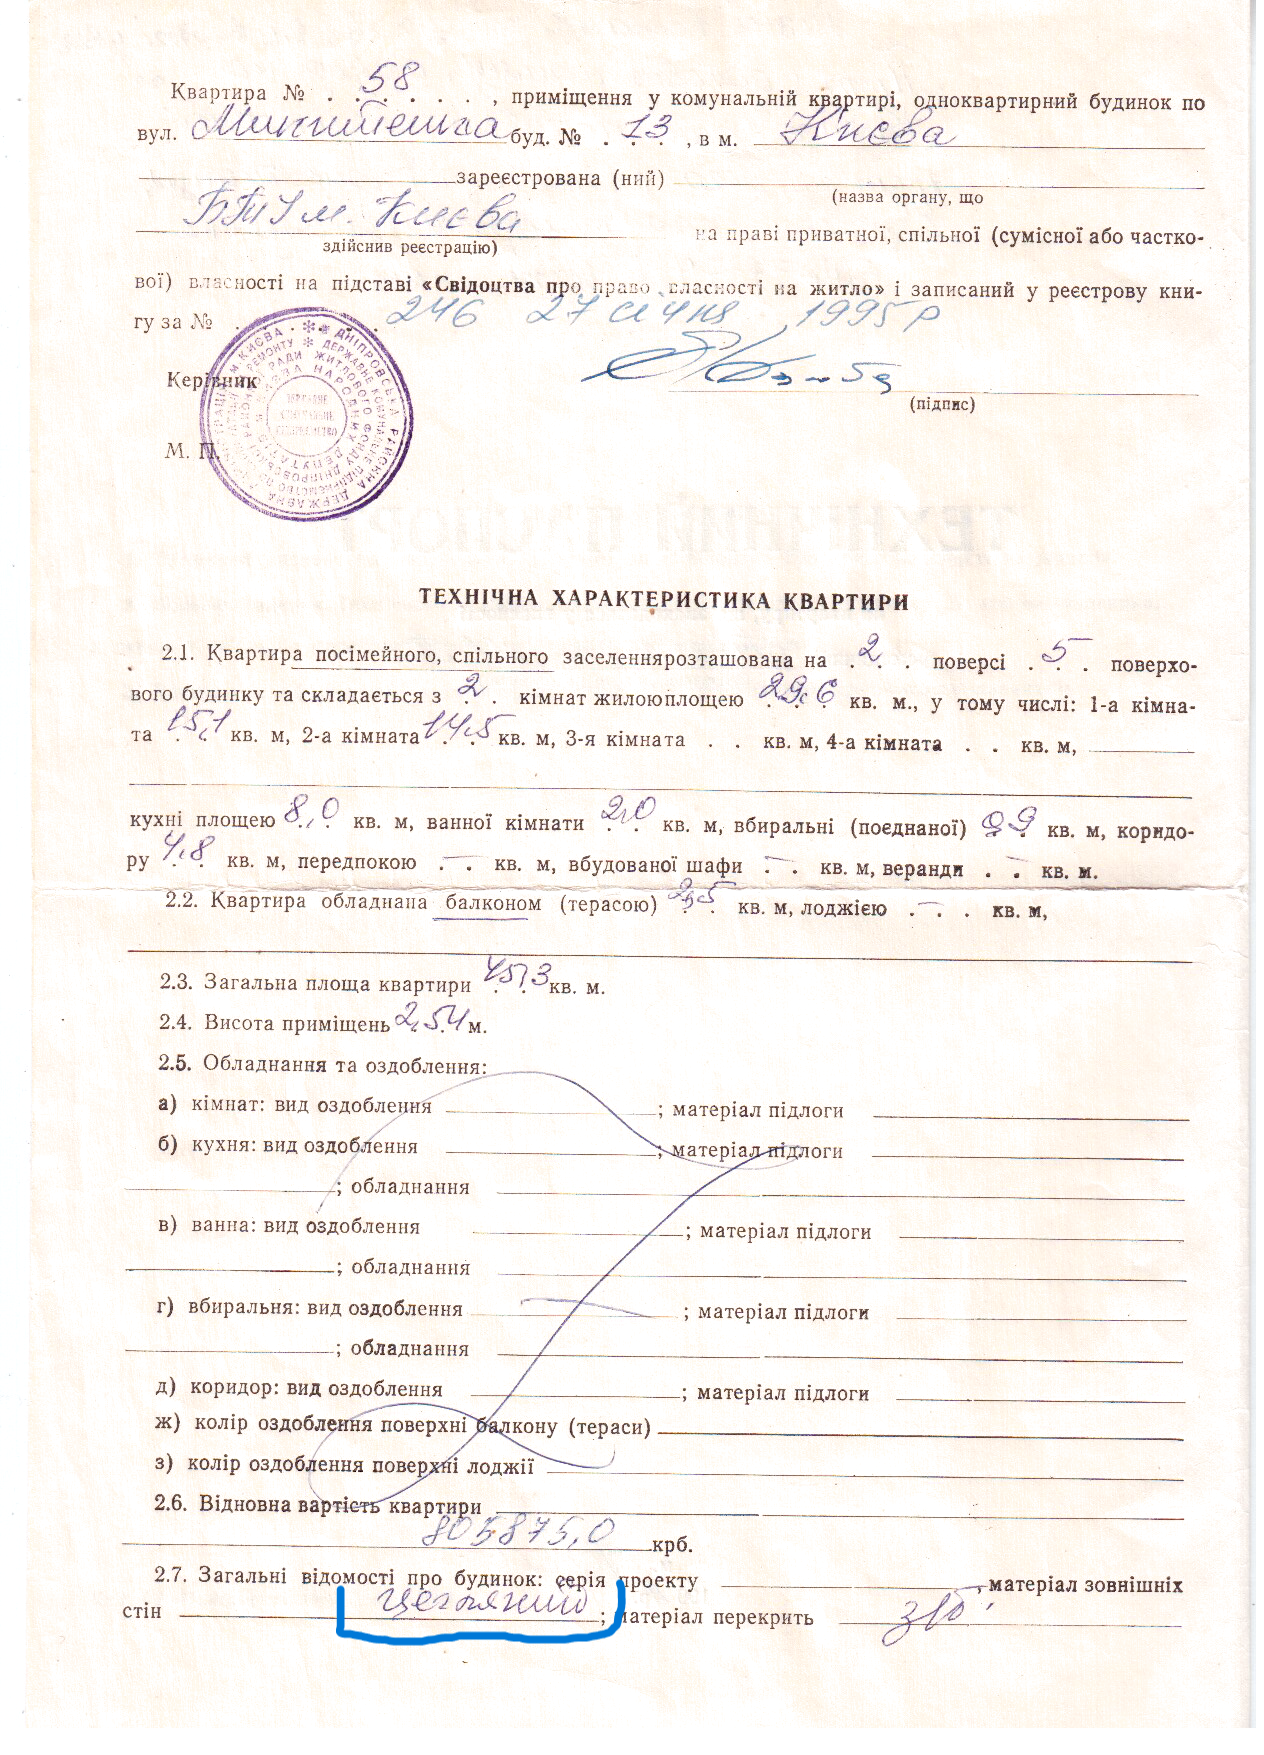 Квартира № . 58 . . . . , приміщення у комунальній квартирі, одноквартирний будинок по
вул. буд. № . 13 . , в м. Києва
зареєстрована (ний)
(назва органу, що
БТІ м. Києва на праві приватної, спільної (сумісної або частко-
здійснив реєстрацію)
вої) власності на підставі «Свідоцтва про право власності на житло» і записаний у реєстрову кни-
гу за № . 246 27 січня 1995 р
Керівник
(підпис)
М. П.
ТЕХНІЧНА ХАРАКТЕРИСТИКА КВАРТИРИ
2.1. Квартира посімейного, спільного заселеннярозташована на . 2 . . поверсі . 5 . . поверхо-
вого будинку та складається з 2 . кімнат жилоюплощею 29,6 кв. м., у тому числі: 1-а кімна-
та 15,1 кв. м, 2-а кімната 14,5 кв. м, 3-я кімната . . кв. м, 4-а кімната . . кв. м,
кухні площею 8,0 кв. м, ванної кімнати 2,0 кв. м, вбиральні (поєднаної) 0,9 кв. м, коридо-
ру 4,8 кв. м, передпокою . — . кв. м, вбудованої шафи — . кв. м, веранди . — . кв. м.
2.2. Квартира обладнана балконом (терасою) 2,5 кв. м, лоджією . — . . кв. м,
2.3. Загальна площа квартири 45,3 кв. м.
2.4. Висота приміщень 2,54 м.
2.5. Обладнання та оздоблення:
а) кімнат: вид оздоблення ; матеріал підлоги
б) кухня: вид оздоблення ; матеріал підлоги
; обладнання
в) ванна: вид оздоблення ; матеріал підлоги
; обладнання
г) вбиральня: вид оздоблення ; матеріал підлоги
; обладнання
д) коридор: вид оздоблення ; матеріал підлоги
ж) колір оздоблення поверхні балкону (тераси)
з) колір оздоблення поверхні лоджії
2.6. Відновна вартість квартири
805875,0 крб.
2.7. Загальні відомості про будинок: серія проекту , матеріал зовнішніх
стін цегляний ; матеріал перекрить з/б